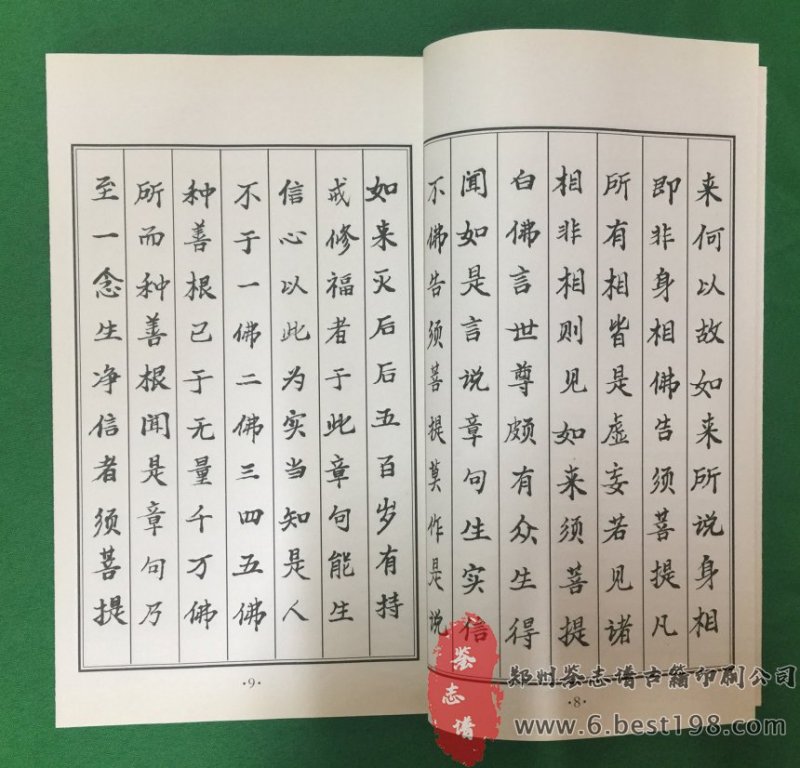 来何以故如来所说身相
即非身相佛告须菩提凡
所有相皆是虚妄若见诸
相非相则见如来须菩提
白佛言世尊颇有众生得
闻如是言说章句生实信
不佛告须菩提莫作是说
·8·
如来灭后后五百岁有持
戒修福者于此章句能生
信心以此为实当知是人
不于一佛二佛三四五佛
种善根已于无量千万佛
所而种善根闻是章句乃
至一念生净信者须菩提
·9·
鉴志谱
郑州鉴志谱古籍印刷公司
www.6.best198.com